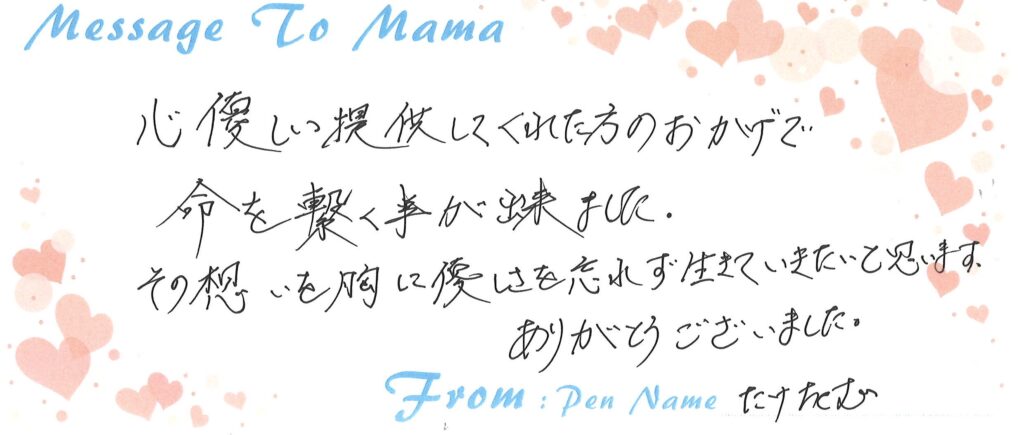 Message To Mama
心優しい提供してくれた方のおかげで
命を繋ぐ事が出来ました.
その想いを胸に優しさを忘れず生きていきたいと思います.
ありがとうございました。
From : Pen Name